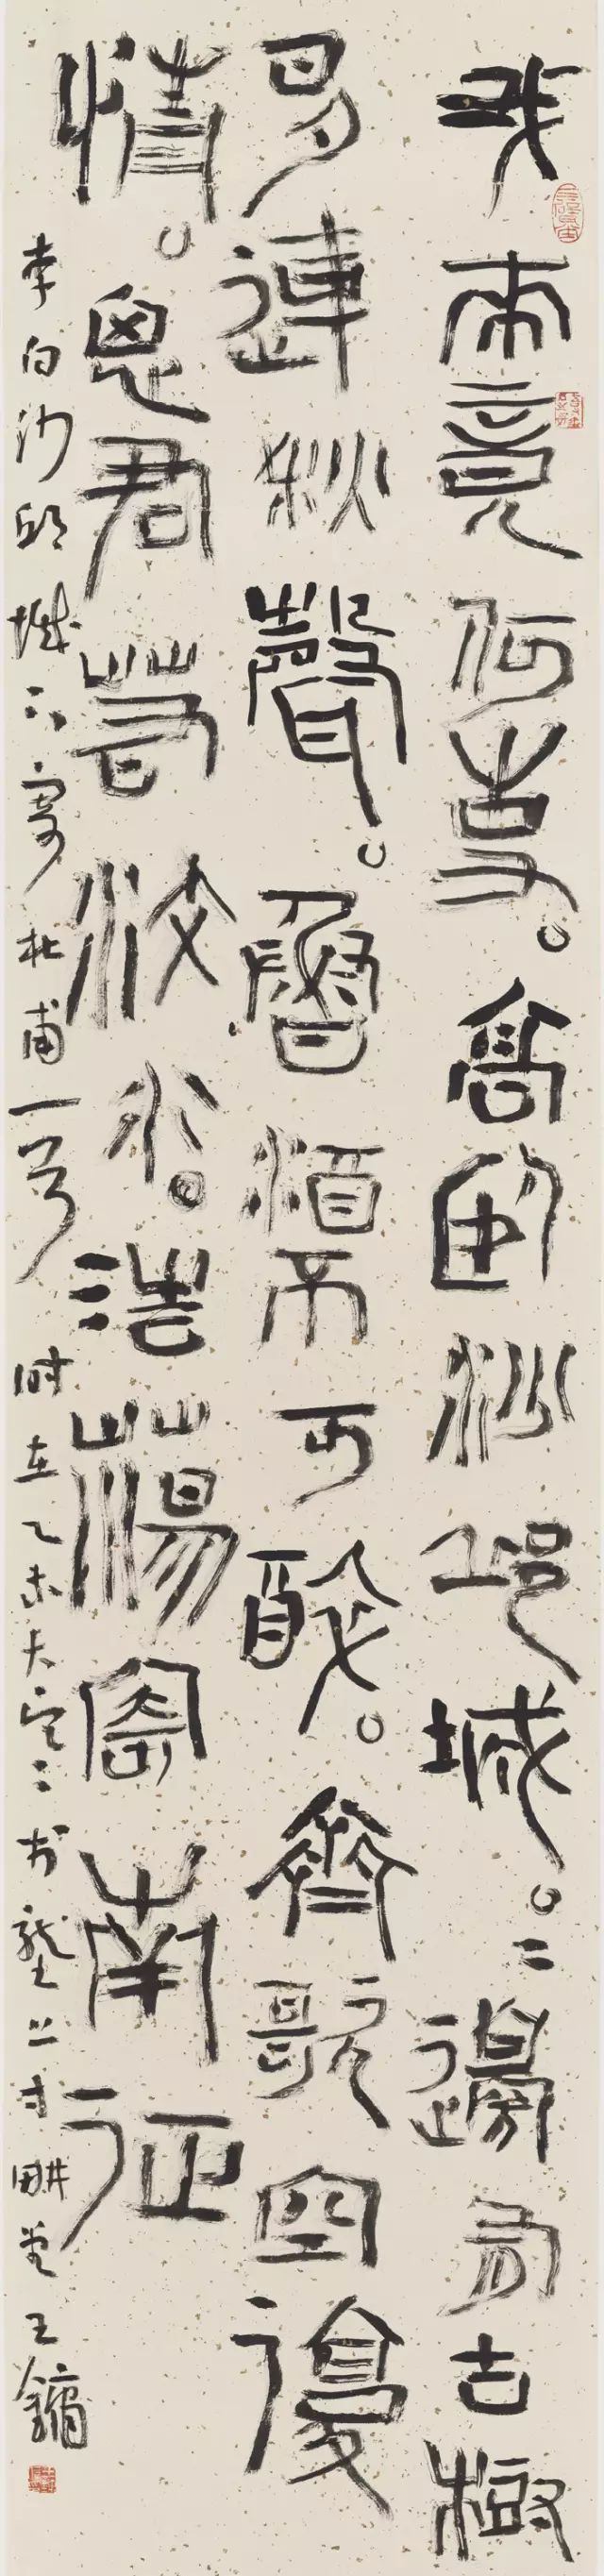 我來竟何事。高臥沙邱城。二邊有古樹
日夕連秋聲。魯酒不可醉。齊歌空復
情。思君若汶水。浩蕩寄南征
李白沙邱城下寄杜甫一首 时在乙未大寒於壟上寸耕堂王鏞